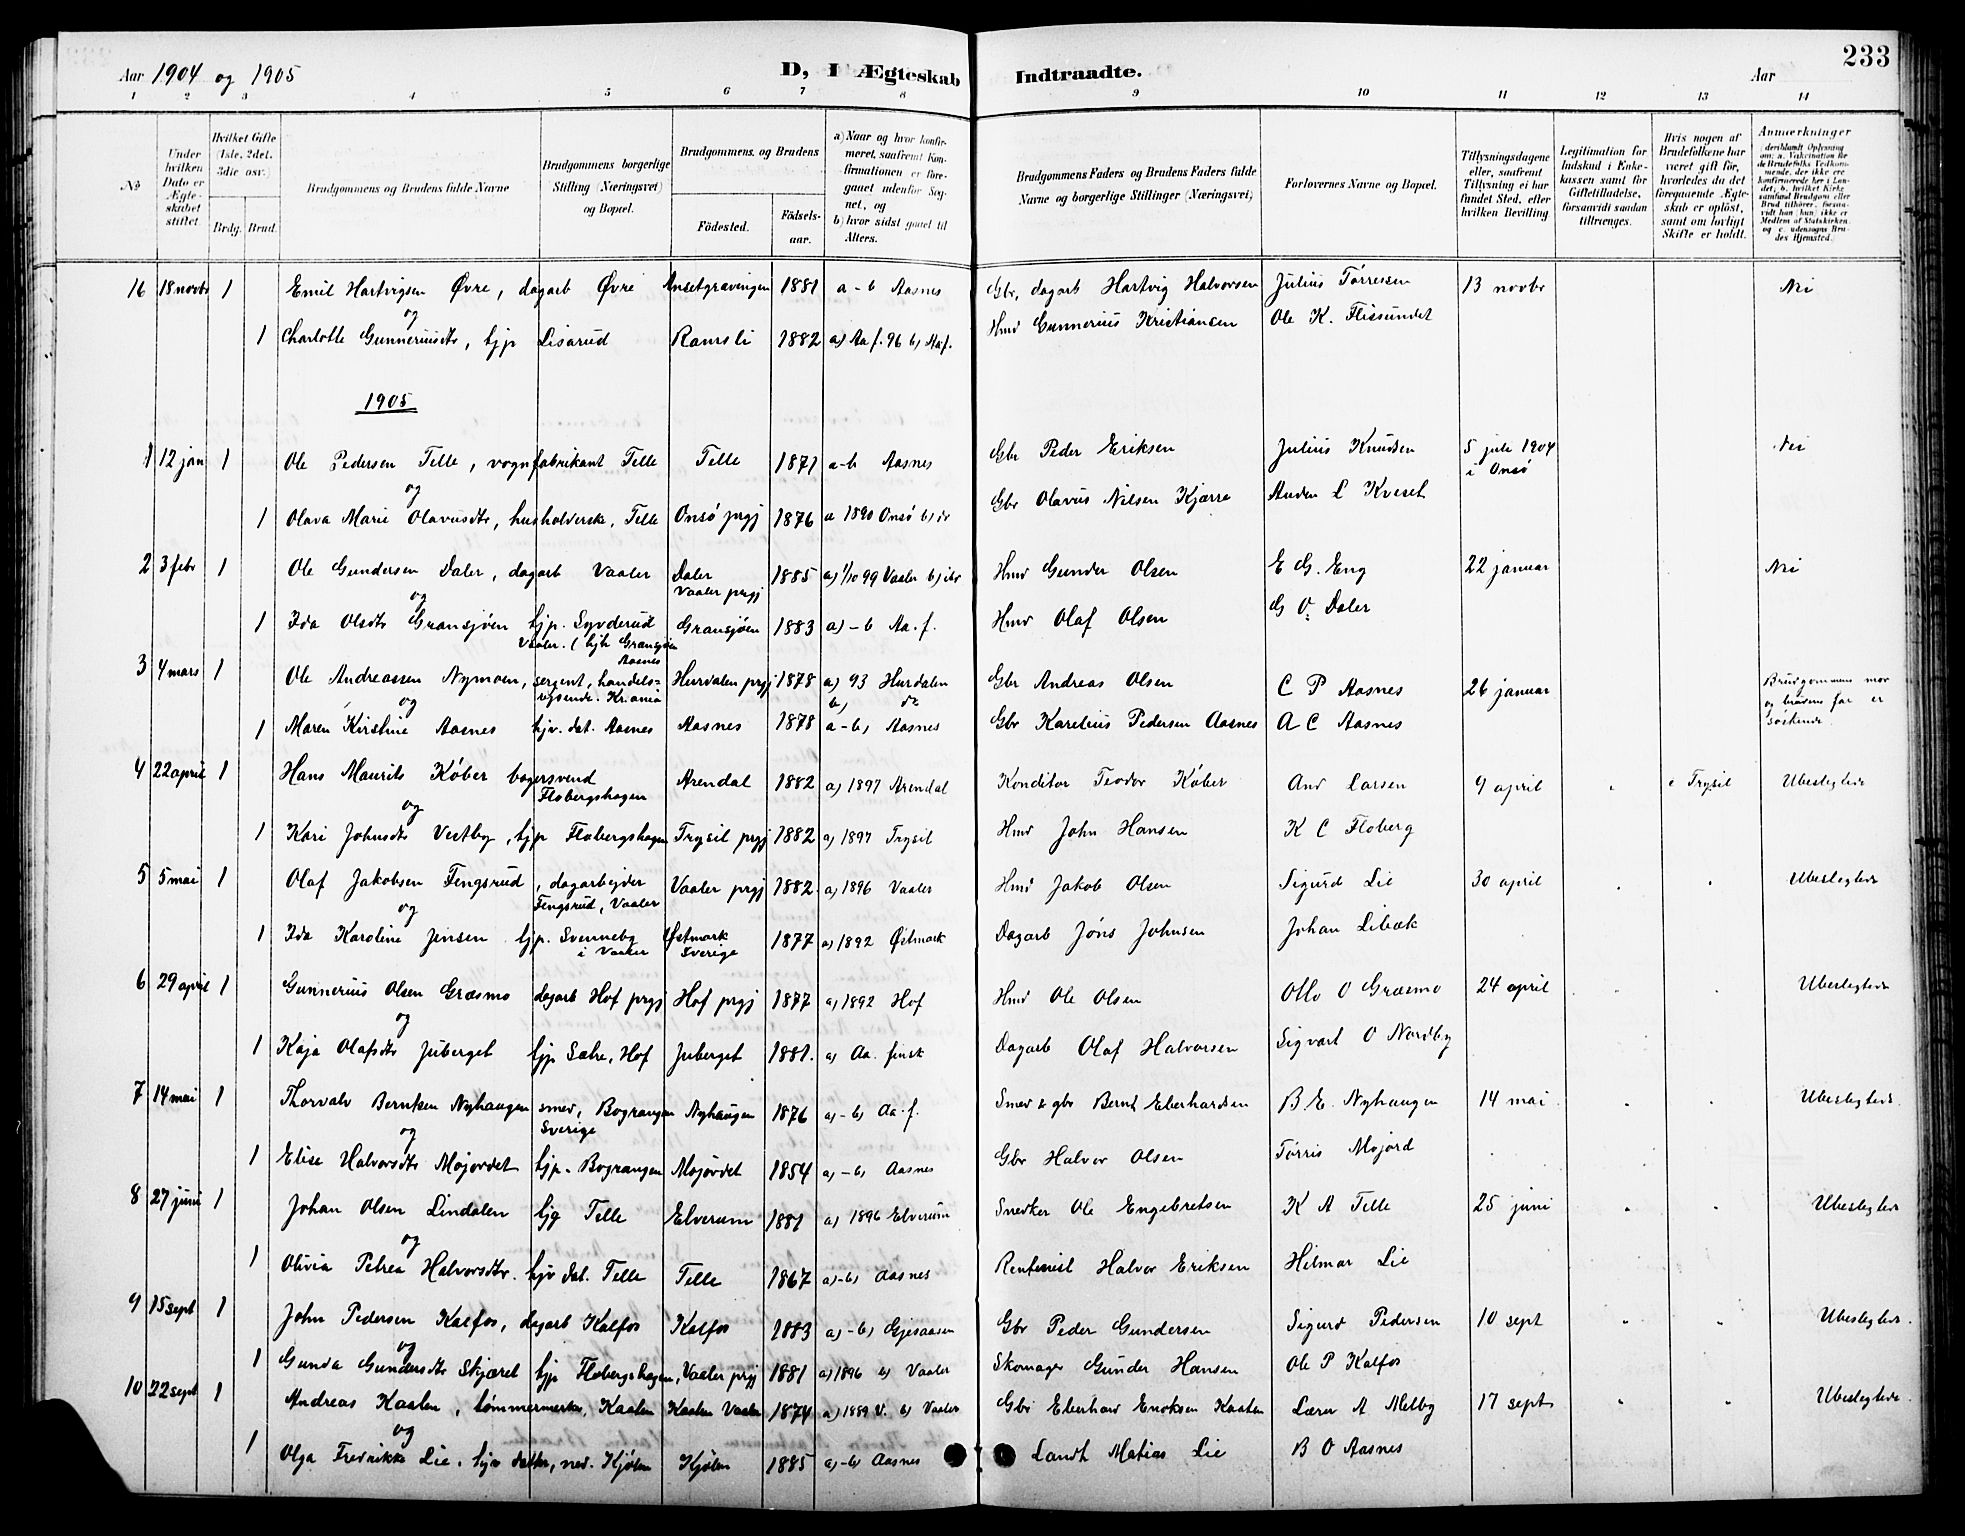 233
Aar 1904 og 1905
D, I Ægteskab Indtraadte.
Aar
1 2 3 4 5 6 7 8 9 10 11 12 13 14
№
Under hvilken Dato er Ægteskabet stiftet.
Hvilket Gifte (1ste, 2det, 3die osv.)
Brdg. Brud.
Brudgommens og Brudens fulde Navne
Brudgommens borgerlige Stilling (Næringsvei) og Bopæl.
Brudgommens og Brudens
Fødested.
Fødselsaar.
a) Naar og hvor konfirmeret, saafremt Konfirmationen er foregaaet udenfor Sognet, og b) hvor sidst gaaet til Alters.
Brudgommens Faders og Brudens Faders fulde Navne og borgerlige Stillinger (Næringsvei)
Forlovernes Navne og Bopæl.
Tillysningsdagene eller, saafremt Tillysning ei har fundet Sted, efter hvilken Bevilling
Legitimation for Indskud i Enkekassen samt for Giftetilladelse, forsaavidt saadan tiltrænges.
Hvis nogen af Brudefolkene har været gift før, hvorledes da det foregaaende Ægteskab er opløst, samt om lovligt Skifte er holdt.
Anmerkninger
16 18 novbr 1 Emil Hartvigsen Øvre, dagarb Øvre Ansetgravingen 1881 a-b Aasnes Gbr, dagarb Hartvig Halvorsen Julius Tørresen 13 novbr Nei
og
1 Charlotte Gunneriusdtr, tjp Lisarud Ramsli 1882 a) Aa f. 96 b) Aaf. Hmd Gunnerius Kristiansen Ole K. Flissundet
1905
1 12 jan 1 Ole Pedersen Telle, vognfabrikant Telle Telle 1871 a-b Aasnes Gbr Peder Eriksen Julius Knudsen 5 juli 1904 i Onsø Nei
og
1 Olava Marie Olavusdtr, husholderske, Telle Onsø prgj 1876 a 1890 Onsø b) do Gbr Olavus Nilsen Kjærre Anden L Kveset
2 3 febr 1 Ole Gundersen Daler, dagarb Vaaler Daler Vaaler prgj 1885 a) 1/10 99 Vaaler b) ibr Hmd Gunder Olsen E G. Eng 22 januar Nei
og
1 Ida Olsdtr Gransjøen tjp. Syvderud Vaaler. ( hjh Gransjøen Aasnes Gransjøen 1883 a) - b Aa. f. Hmd Olaf Olsen G O. Daler
3 4 mars 1 Ole Andreassen Nymoen, sergent, handelsreisende. Kr.ania Hurdalen prgj 1878 a) 93 Hurdalen b) do Gbr Andreas Olsen C P Aasnes 26 januar Brudgommens mor og brudens far er søskende.
og
1 Maren Kirstine Aasnes hjv. dat. Aasnes Aasnes 1878 a-b) Aasnes Gbr Karelius Pedersen Aasnes A C Aasnes
4 22 april 1 Hans Maurits Køber bagersvend Flobergshagen Arendal 1882 a) 1897 Arendal Konditor Teodor Køber And Larsen 9 april i Trysil Ubeslegtede
og
1 Kari Johnsdtr Vestby, tjp Flobergshagen Trysil prgj 1882 a) 1897 Trysil Hmd John Hansen K C Floberg
5 5 mai 1 Olaf Jakobsen Fengsrud, dagarbejder Fengsrud, Vaaler Vaaler prgj 1882 a) 1896 Vaaler Hmd Jakob Olsen Sigurd Lie 30 april Ubeslegtede
og
1 Ida Karoline Jensen tjp. Svenneby i Vaaler Østmark Sverige 1877 a) 1892 Østmark Dagarb Jøns Johnsen Johan Libæk
6 29 april 1 Gunnerius Olsen Græsmo dagarb Hof prgj Hof prgj 1877 a) 1892 Hof Hmd Ole Olsen Otto O Græsmo 24 april Ubeslegtede
og
1 Kaja Olafsdtr Juberget tjp Sætre, Hof Juberget 1881. a) Aa. finsk Dagarb Olaf Halvorsen Sigvart O Nordby
7 14 mai 1 Thorvald Berntsen Nyhaugen smed, Bograngen Sverige Nyhaugen 1876 a) - b) Aa. f. Smed & gbr Bernt Eberhardsen B. E. Nyhaugen 14 mai Ubeslegtede.
og
1 Elise Halvorsdtr Mojordet tjp. Bograngen Mojordet 1854 a) - b) Aasnes Gbr Halvor Olsen Tørris Mojord
8 27 juni 1 Johan Olsen Lindalen tjg Telle Elverum 1881 a) 1896 Elverum Snedker Ole Engebretsen K A Telle 25 juni Ubeslegtede
og
1 Olivia Petrea Halvorsdtr. hjv dat. Telle Telle 1867 a) - b) Aasnes Rentenist Halvor Eriksen Hilmar Lie
9 15 sept 1 John Pedersen Kalfos, dagarb Kalfos Kalfos 1883 a) - b) Gjesaasen Gbr Peder Gundersen Sigurd Pedersen 10 sept Ubeslegtede.
og
1 Gunda Gundersdtr Skjæret tjp Flobergshagen, Vaaler prgj 1881 a) 1896 b) Vaaler Skomager Gunder Hansen Ole P Kalfos
10 22 sept 1 Andreas Kaaten, tømmermerker, Kaaten Kaaten Vaaler 1874 a) 1889 V. b) Vaaler Gbr Eberhard Enoksen Kaaten Lærer A Melby 17 sept Ubeslegtede
og
1 Olga Fredrikke Lie. hjv datter, ned. Kjølen Kjølen 1885 a) - b) Aasnes Landh Matias Lie B O Aasnes